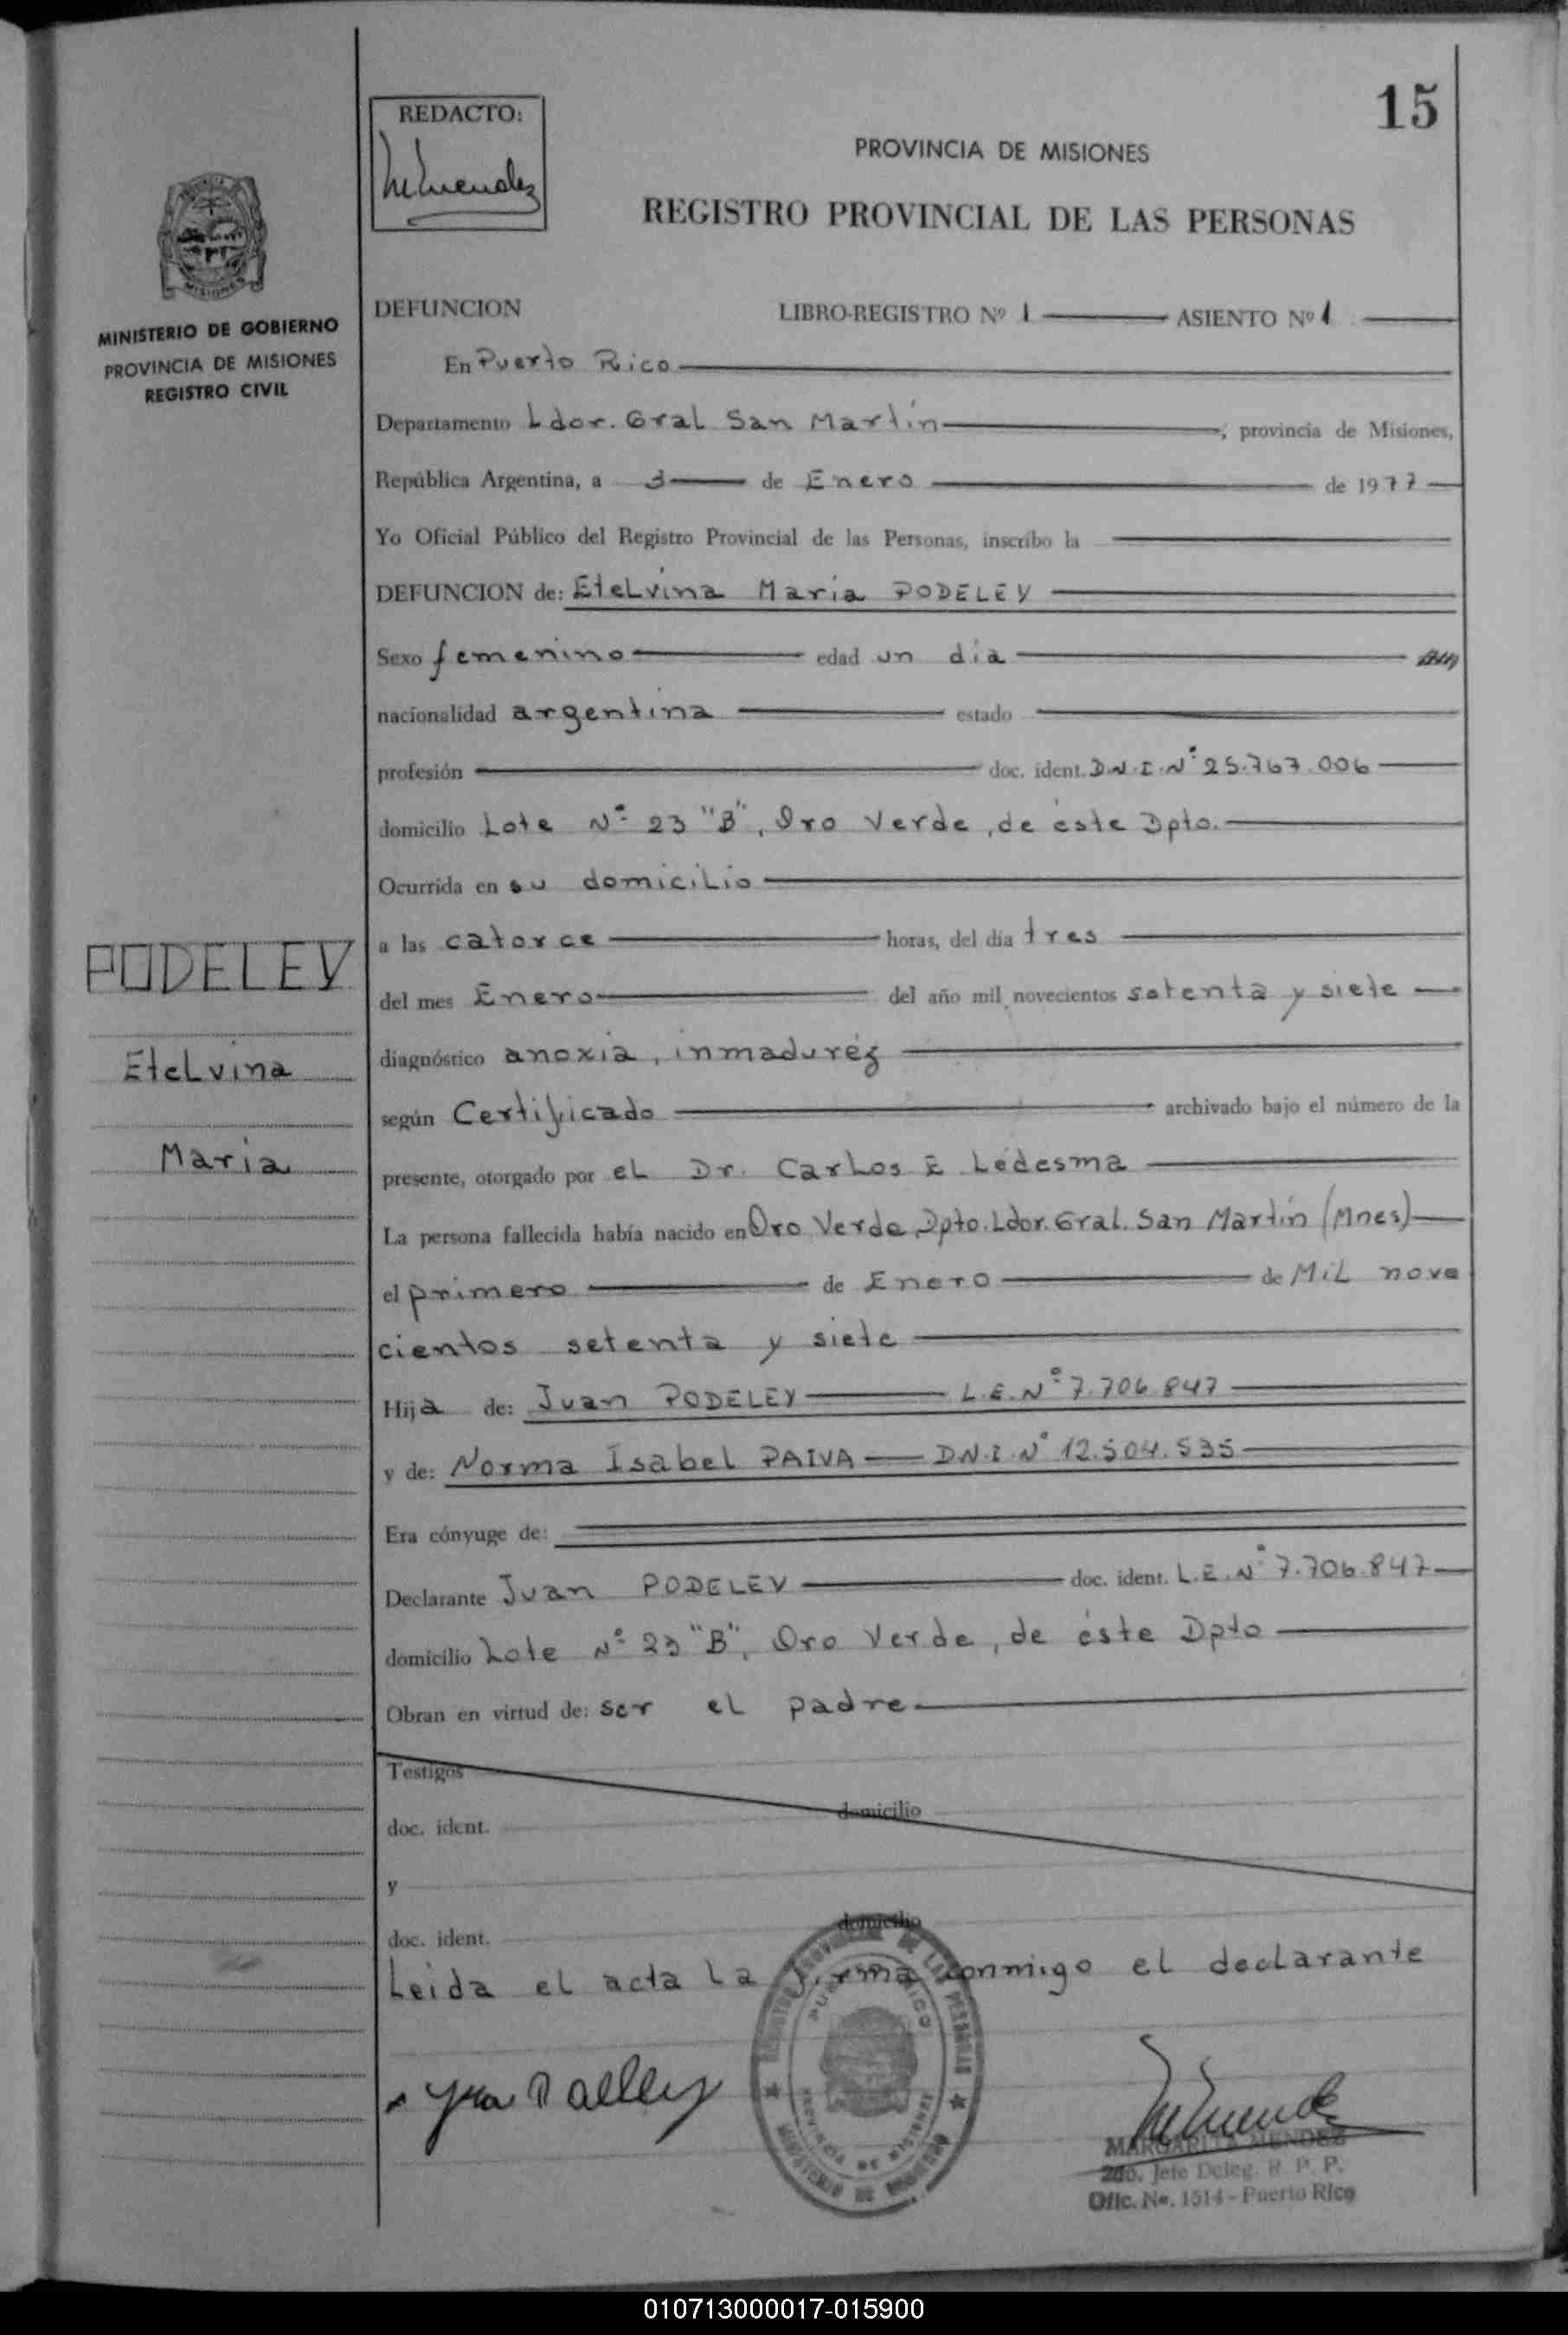 15
REDACTO:
PROVINCIA DE MISIONES
REGISTRO PROVINCIAL DE LAS PERSONAS
MISIONES
MINISTERIO DE GOBIERNO
PROVINCIA DE MISIONES
REGISTRO CIVIL
DEFUNCION LIBRO-REGISTRO Nº 1 ASIENTO Nº 1
En Puerto Rico
Departamento Ldor. Gral San Martín, provincia de Misiones,
República Argentina, a 3 de Enero de 1977
Yo Oficial Público del Registro Provincial de las Personas, inscribo la
DEFUNCION de: Etelvina Maria PODELEY
Sexo femenino edad un día
nacionalidad argentina estado
profesión doc. ident. D.N.I. Nº 25.767.006
domicilio Lote Nº 23 "B", Oro Verde, de éste Dpto.
Ocurrida en su domicilio
a las catorce horas, del día tres
del mes Enero del año mil novecientos setenta y siete
diagnóstico anoxia, inmaduréz
según Certificado archivado bajo el número de la
presente, otorgado por el Dr. Carlos E Ledesma
La persona fallecida había nacido en Oro Verde Dpto. Ldor. Gral. San Martín (Mnes)
el primero de Enero de Mil nove
cientos setenta y siete
Hija de: Juan PODELEY L.E. Nº 7.706.847
y de: Norma Isabel PAIVA D.N.I. Nº 12.504.535
Era cónyuge de:
Declarante Juan PODELEY doc. ident. L.E. Nº 7.706.847
domicilio Lote Nº 23 "B", Oro Verde, de éste Dpto
Obran en virtud de: ser el padre
Testigos
doc. ident. domicilio
y
doc. ident. domicilio
Leida el acta la firma conmigo el declarante
PODELEY
Etelvina
Maria
MARGARITA MENDEZ
2do. Jefe Deleg. R. P. P.
Ofic. Nº. 1514 - Puerto Rico
010713000017-015900